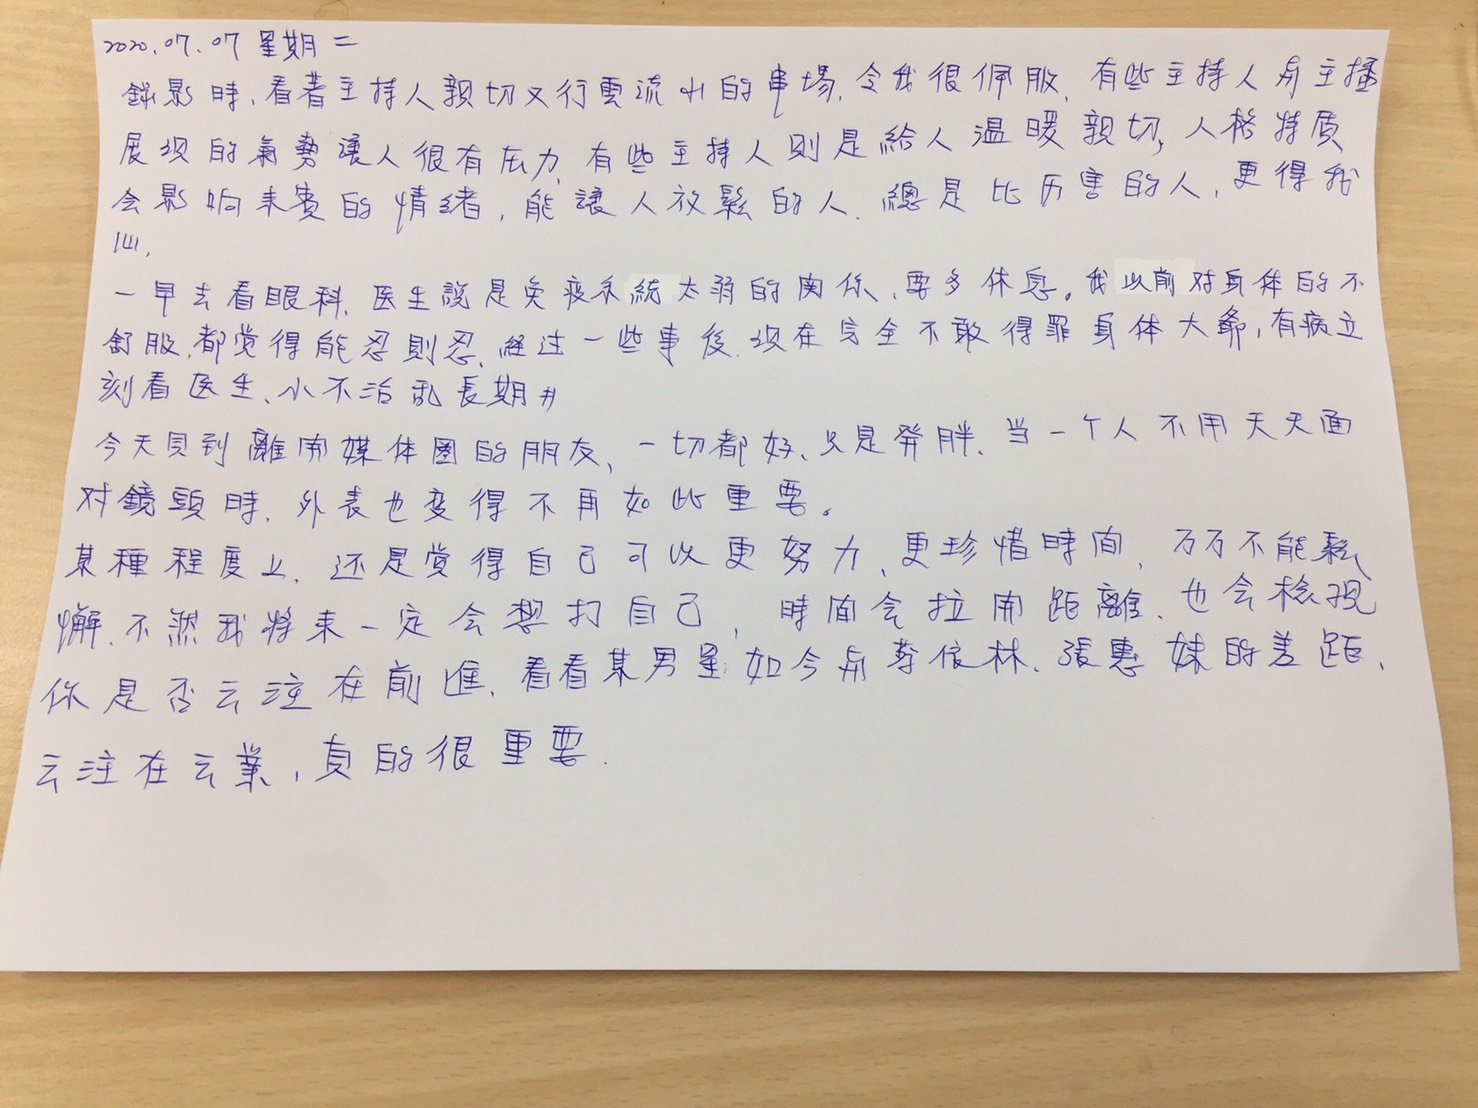 2020.07.07 星期二
錄影時,看著主持人親切又行雲流水的串場,令我很佩服,有些主持人與主播
展现的氣勢讓人很有压力,有些主持人則是給人溫暖親切,人格特质
会影响来賓的情緒,能讓人放鬆的人,總是比厉害的人,更得我
心,
一早去看眼科,医生說是免疫系統太弱的関係,要多休息。我以前对身体的不
舒服,都觉得能忍則忍,経过一些事後,现在完全不敢得罪身体大爺,有病立
刻看医生,小不治乱長期#
今天見到離開媒体圈的朋友,一切都好,只是発胖,当一个人不用天天面
对鏡頭時,外表也变得不再如此重要。
某種程度上,还是觉得自己可以更努力,更珍惜時间,万万不能鬆
懈,不然我将来一定会想打自己,時间会拉開距離,也会検视
你是否专注在前進,看看某男星如今與蔡依林、張惠妹的差距,
专注在专業,真的很重要.